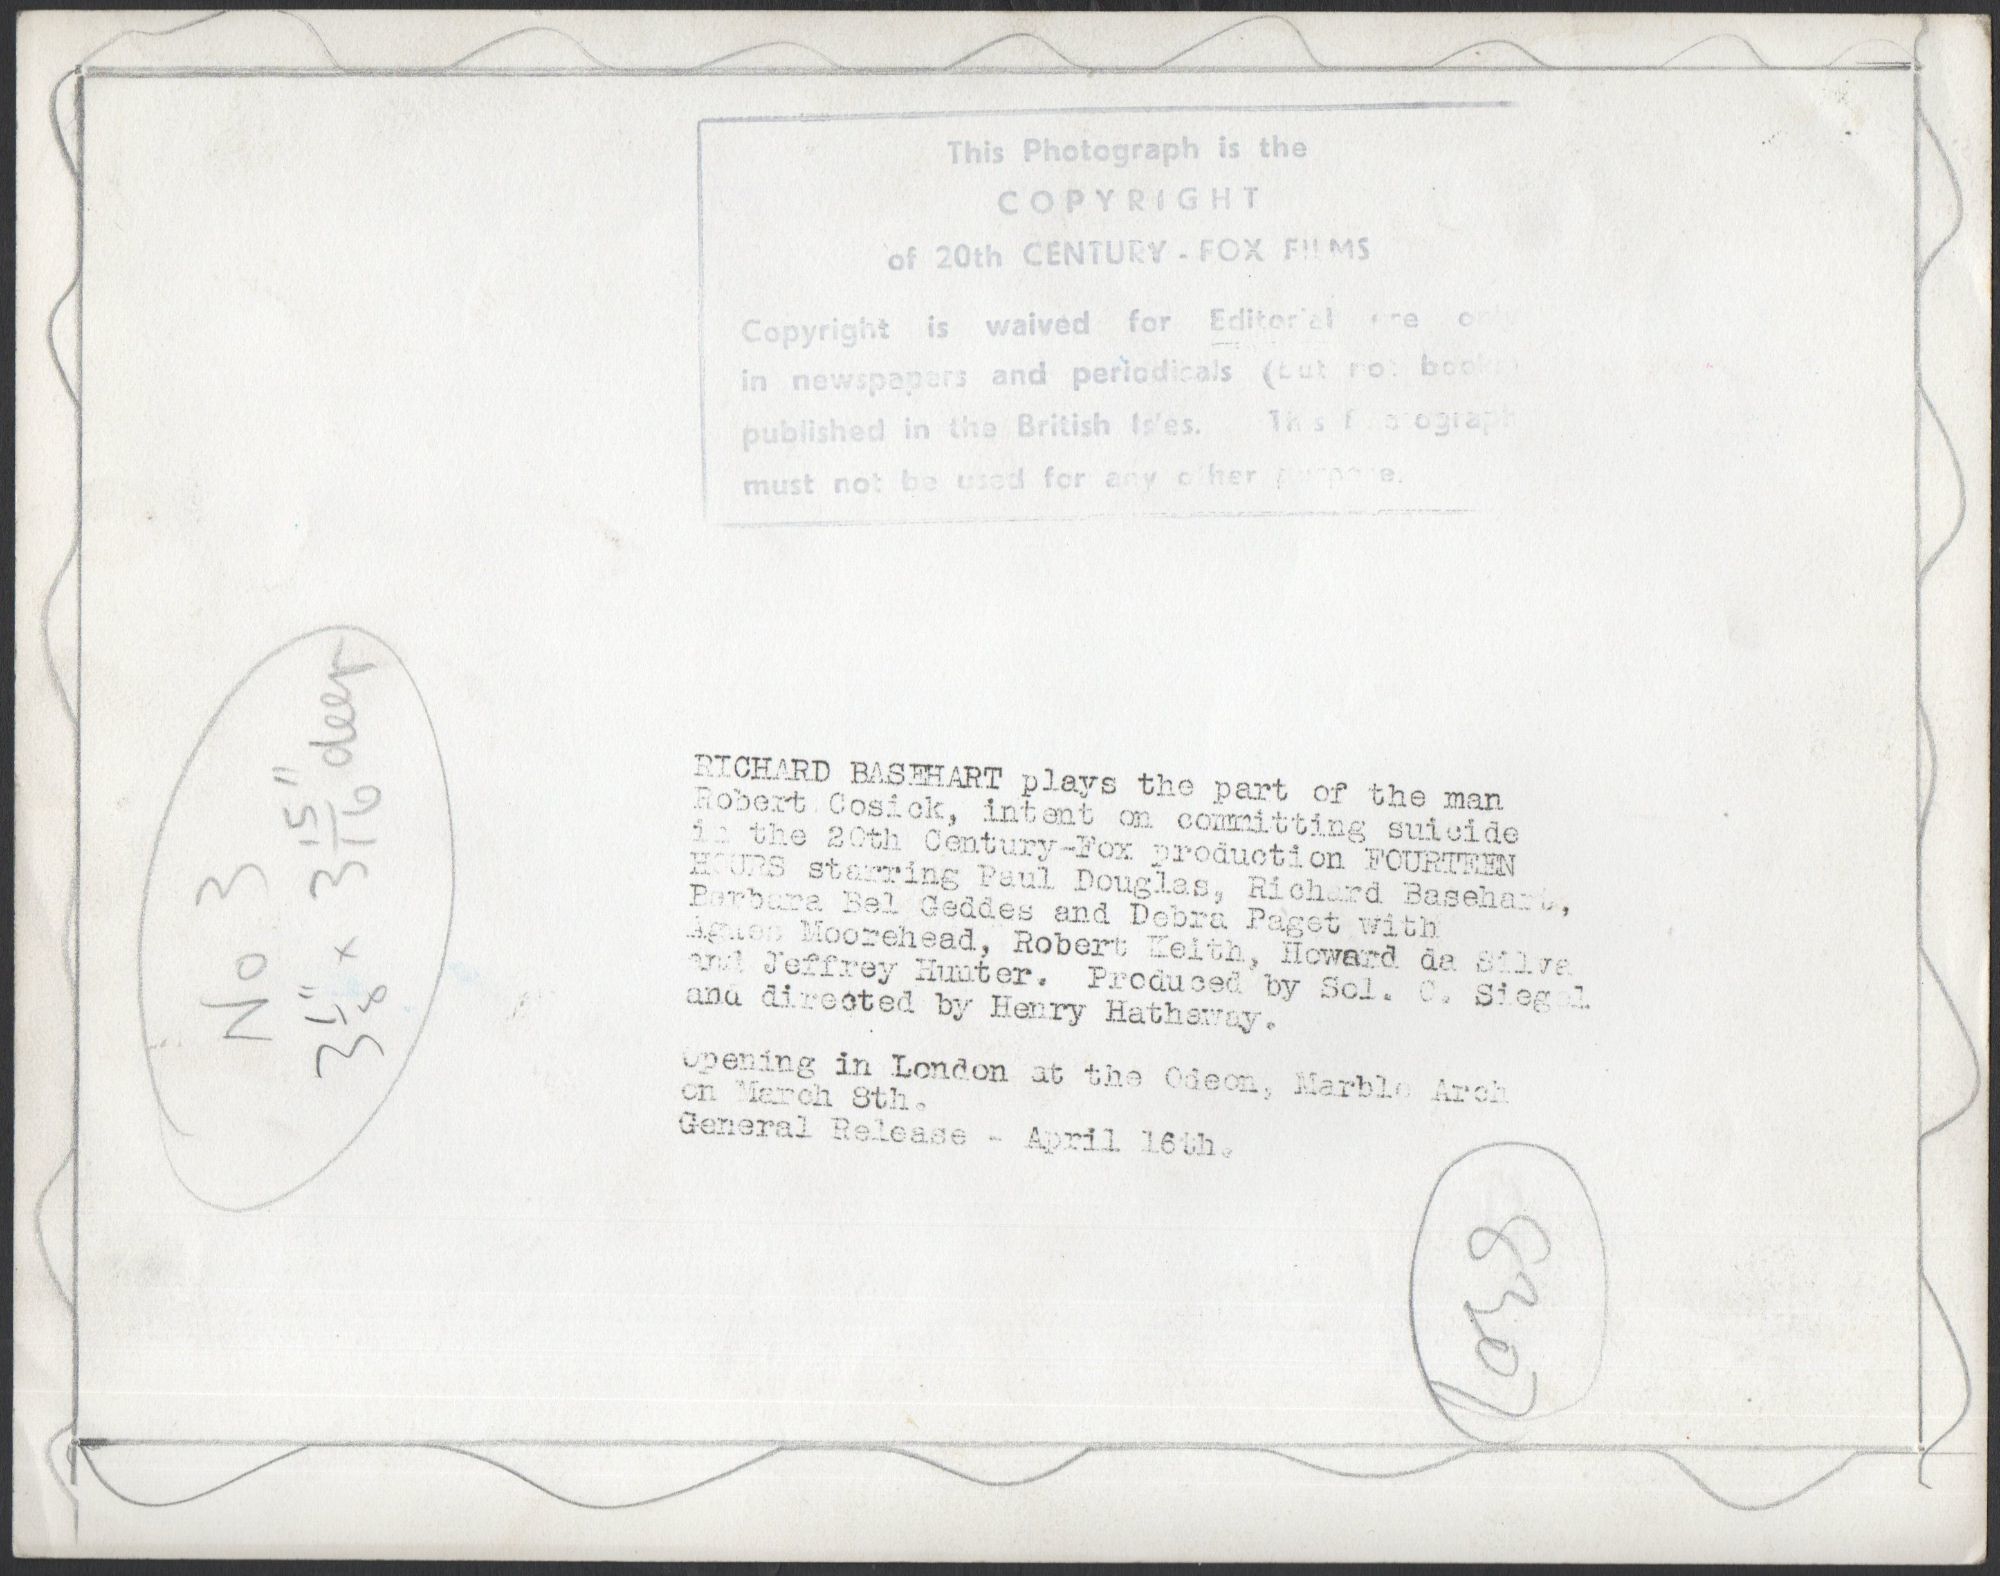 This Photograph is the
COPYRIGHT
of 20th CENTURY - FOX FILMS
Copyright is waived for Editorial use only
in newspapers and periodicals (but not books)
published in the British Isles. This Photograph
must not be used for any other purpose.
RICHARD BASEHART plays the part of the man
Robert Cosick, intent on committing suicide
in the 20th Century-Fox production FOURTEEN
HOURS starring Paul Douglas, Richard Basehart,
Barbara Bel Geddes and Debra Paget with
Agnes Moorehead, Robert Keith, Howard da Silva
and Jeffrey Hunter. Produced by Sol. C. Siegel
and directed by Henry Hathaway.
Opening in London at the Odeon, Marble Arch
on March 8th.
General Release - April 16th.
No 3
3 1/8" x 3 15/16" deep